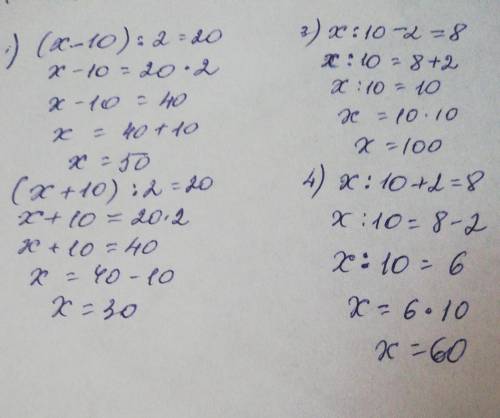 1) (x-10):2=20
x-10=20·2
x-10=40
x=40+10
x=50
(x+10):2=20
x+10=20·2
x+10=40
x=40-10
x=30
3) x:10-2=8
x:10=8+2
x:10=10
x=10·10
x=100
4) x:10+2=8
x:10=8-2
x:10=6
x=6·10
x=60